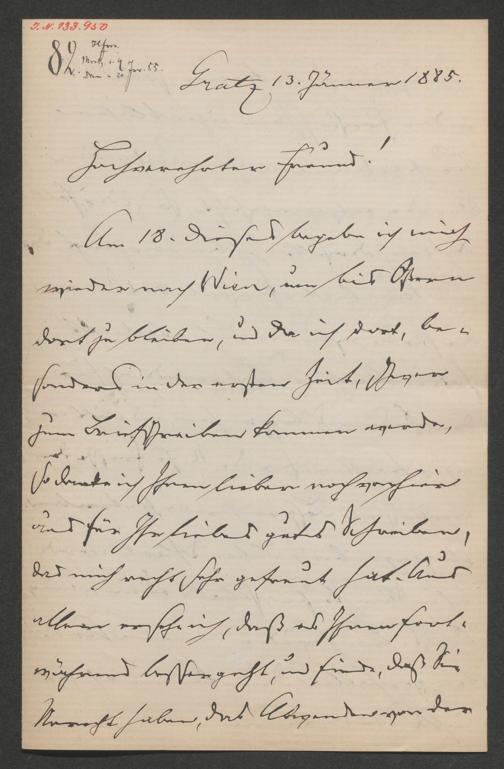 I.N. 133.950
82.
Gratz 13. Jänner 1885.
Hochverehrter Freund!
Am 18. dieses begebe ich mich
wieder nach Wien, um bis Ostern
dort zu bleiben, und da ich dort, be-
sonders in der ersten Zeit, schwer
zum Briefschreiben kommen werde,
so danke ich Ihnen lieber noch von hier
aus für Ihr liebes gutes Schreiben,
das mich recht sehr gefreut hat. Aus
allem ersehe ich, daß es Ihnen fort-
während besser geht, und finde, daß Sie
Unrecht haben, das Abwenden von der